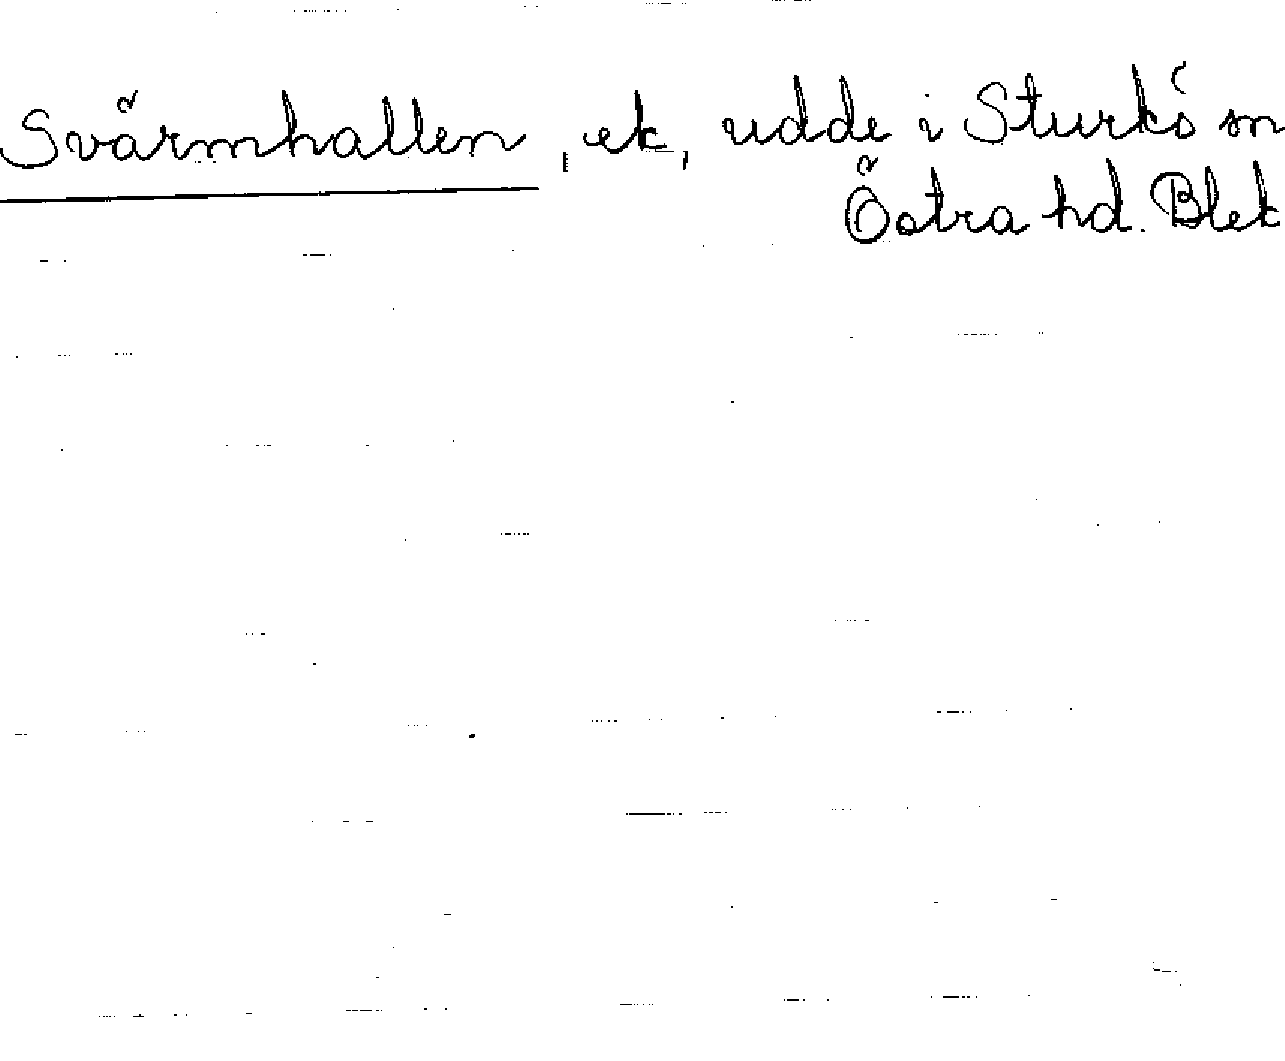 Svärmhallen, ek, udde i Sturkö sn
Östra hd. Blek